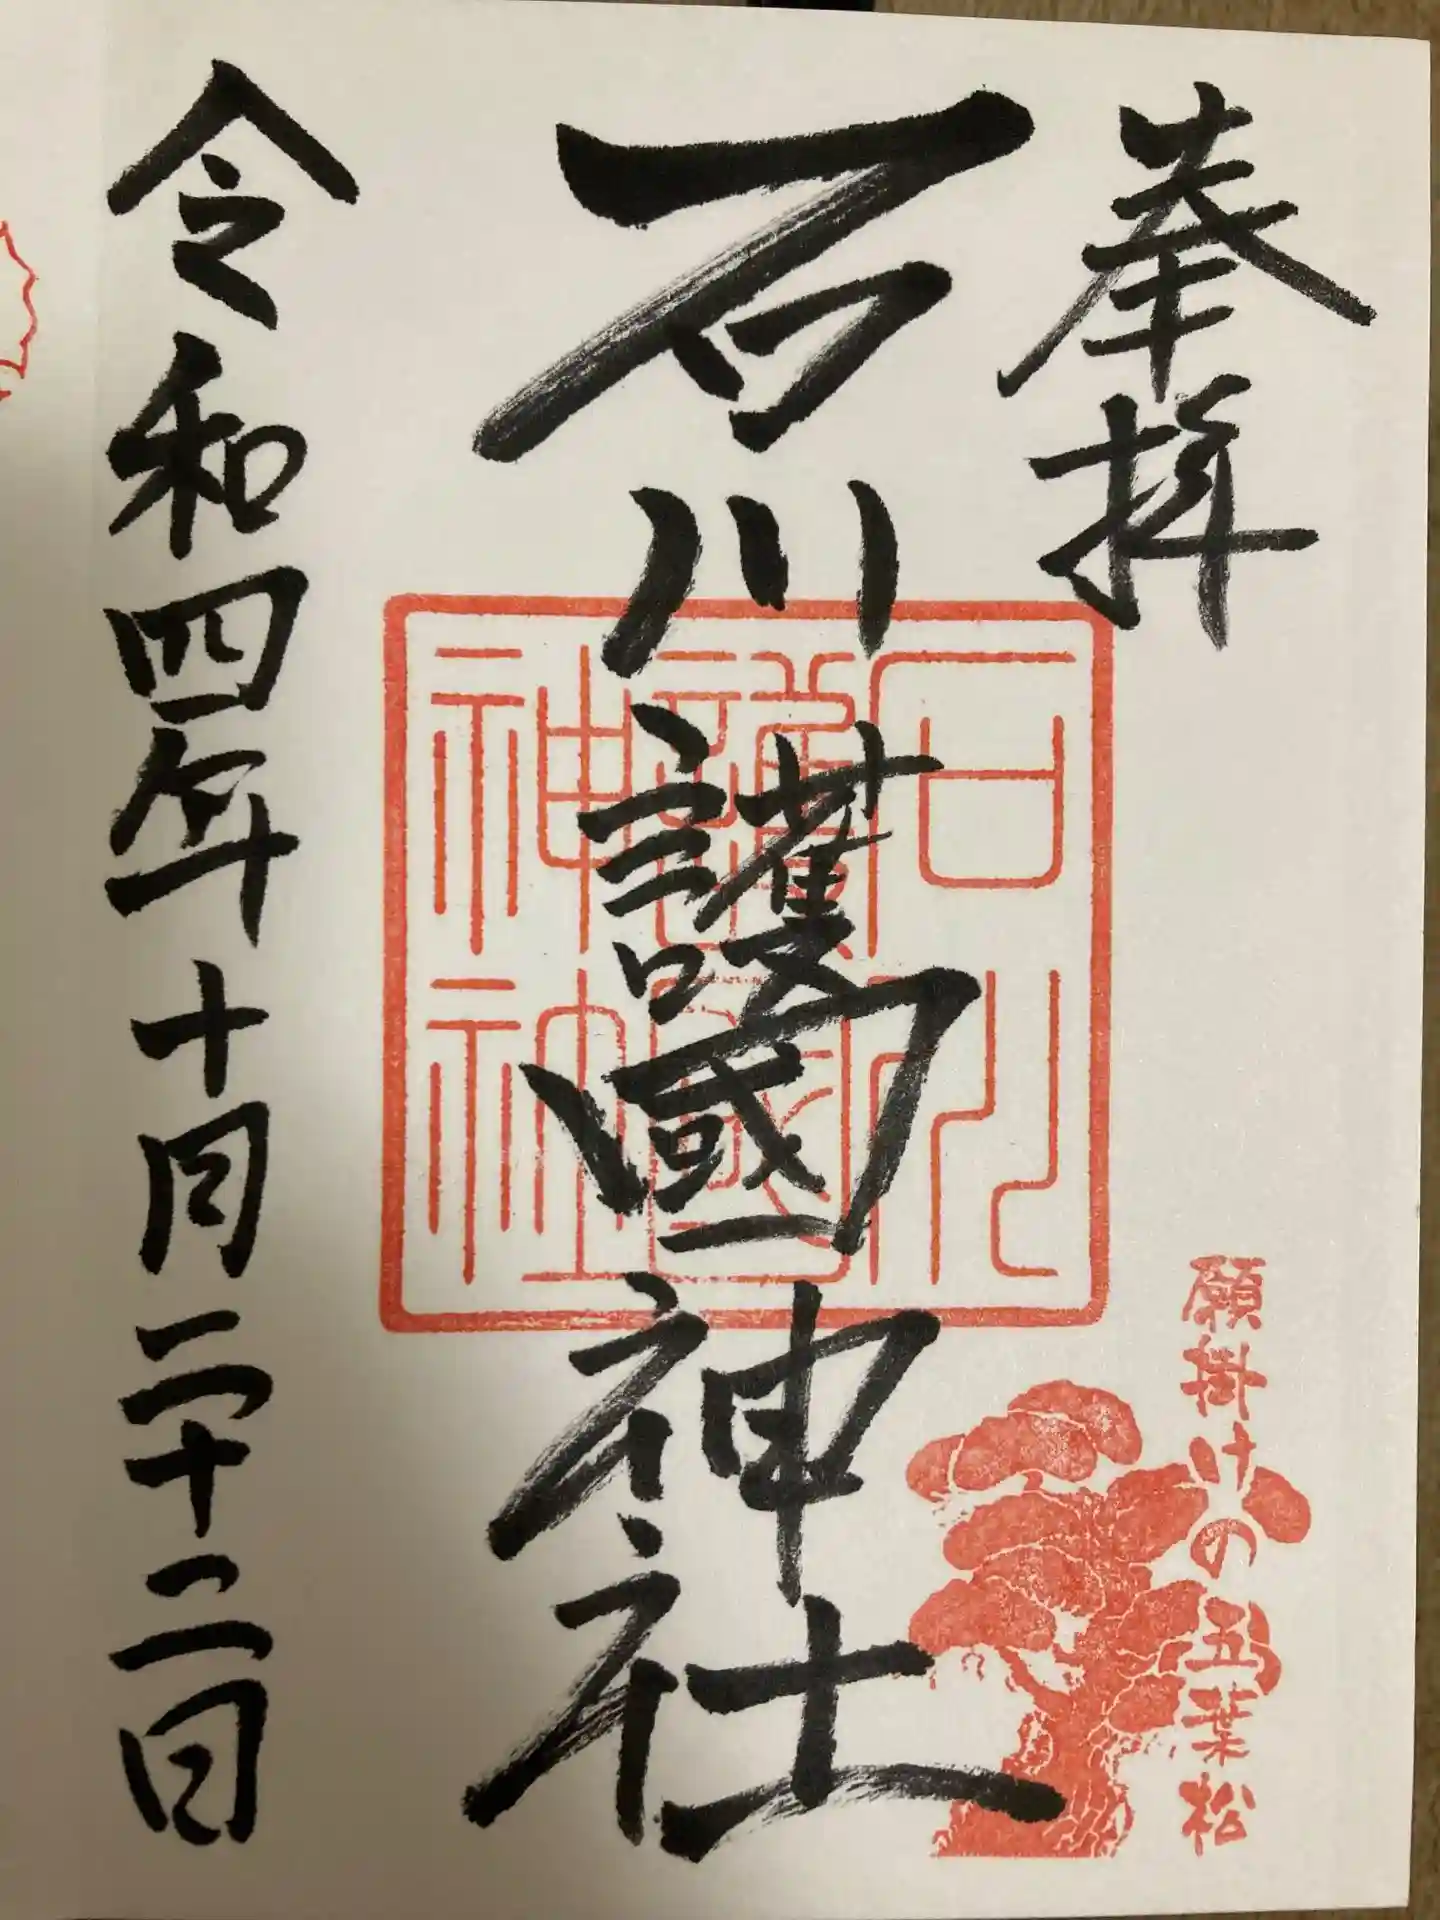 奉拝
石川護國神社
石川護國神社
願掛けの五葉松
令和四年十月二十二日